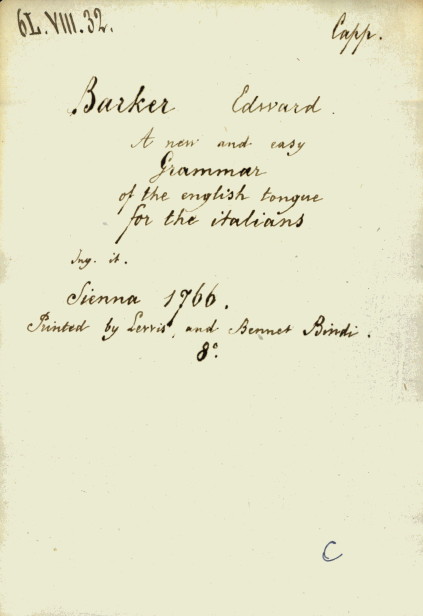 6L.VIII.32.
Capp.
Barker Edward.
A new and easy
Grammar
of the english tongue
for the italians
Ing. it.
Sienna 1766.
Printed by Lewis, and Bennet Bindi.
8°.
C